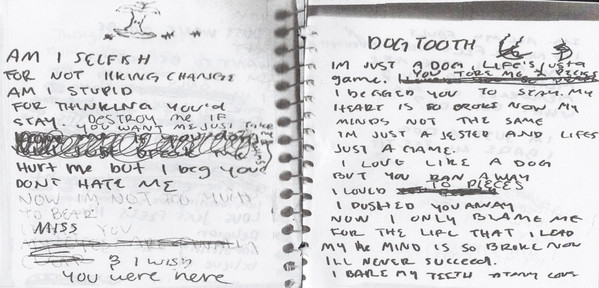 AM I SELFISH
FOR NOT LIKING CHANGE
AM I STUPID
FOR THINKING YOU'd
STAY. DESTROY ME IF
YOU WANT ME JUST
HURT ME but I beg you
DONT HATE ME
NOW IM NOT TO MUCH
TO BEAR
MISS YOU
& I WISH
YOU were here
DOGTOOTH
IM JUST A DOG, LIFE'S JUST A
game. YOU TORE ME 2 PIECES
I BEGGED YOU TO STAY. MY
HEART IS SO BROKE NOW MY
MINDS NOT THE SAME
IM JUST A JESTER AND LIFES
JUST A GAME.
I LOVE LIKE A DOG
BUT YOU RAN AWAY
I LOVED TO PIECES
I PUSHED YOU AWAY
NOW I ONLY BLAME ME
FOR THE LIFE THAT I LEAD
MY MIND IS SO BROKE NOW
ILL NEVER SUCCEED.
I BARE MY TEETH AT ANY LOVE